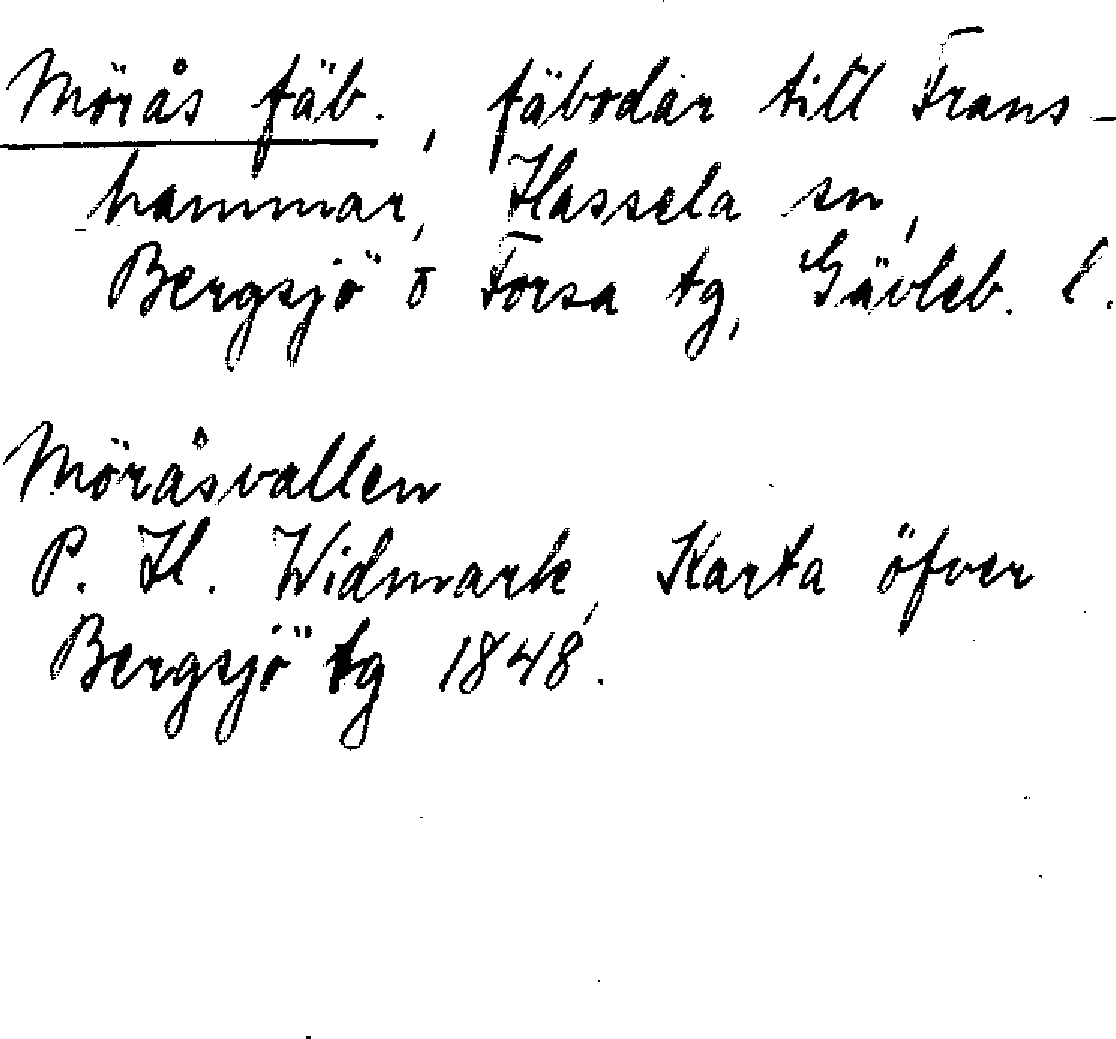 Mörås fäb., fäbodar till Frans-
hammar, Hassela sn,
Bergsjö o Forsa tg, Gävleb. l.
Möråsvallen
P. H. Widmark, Karta öfver
Bergsjö tg 1848.